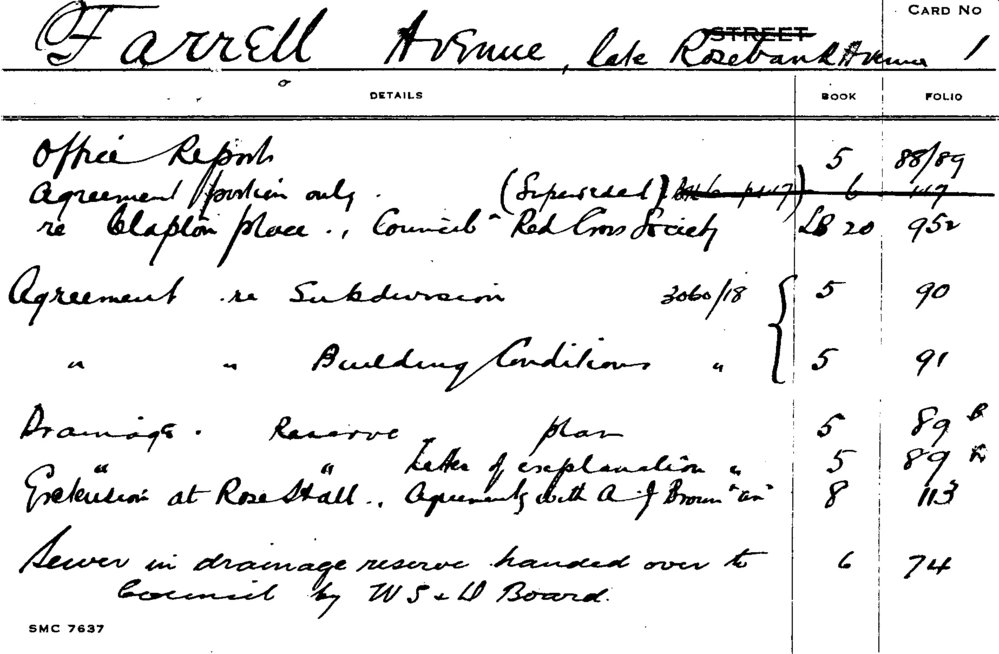 CARD NO
Farrell Avenue, late Rosebank Avenue STREET 1
DETAILS BOOK FOLIO
Office Report 5 88/89
Agreement portion only. (Superseded) 6 117
re Clapton place ., Council - Red Cross Society LB 20 952
Agreement re Subdivision 3060/18 5 90
" " Building Conditions " 5 91
Drainage. Reserve plan 5 89
" " Letter of explanation " 5 89
Extension at Rose Hall ., Agreements with A J Brown 8 113
Sewer in drainage reserve handed over to 6 74
Council by W S & D Board.
SMC 7637